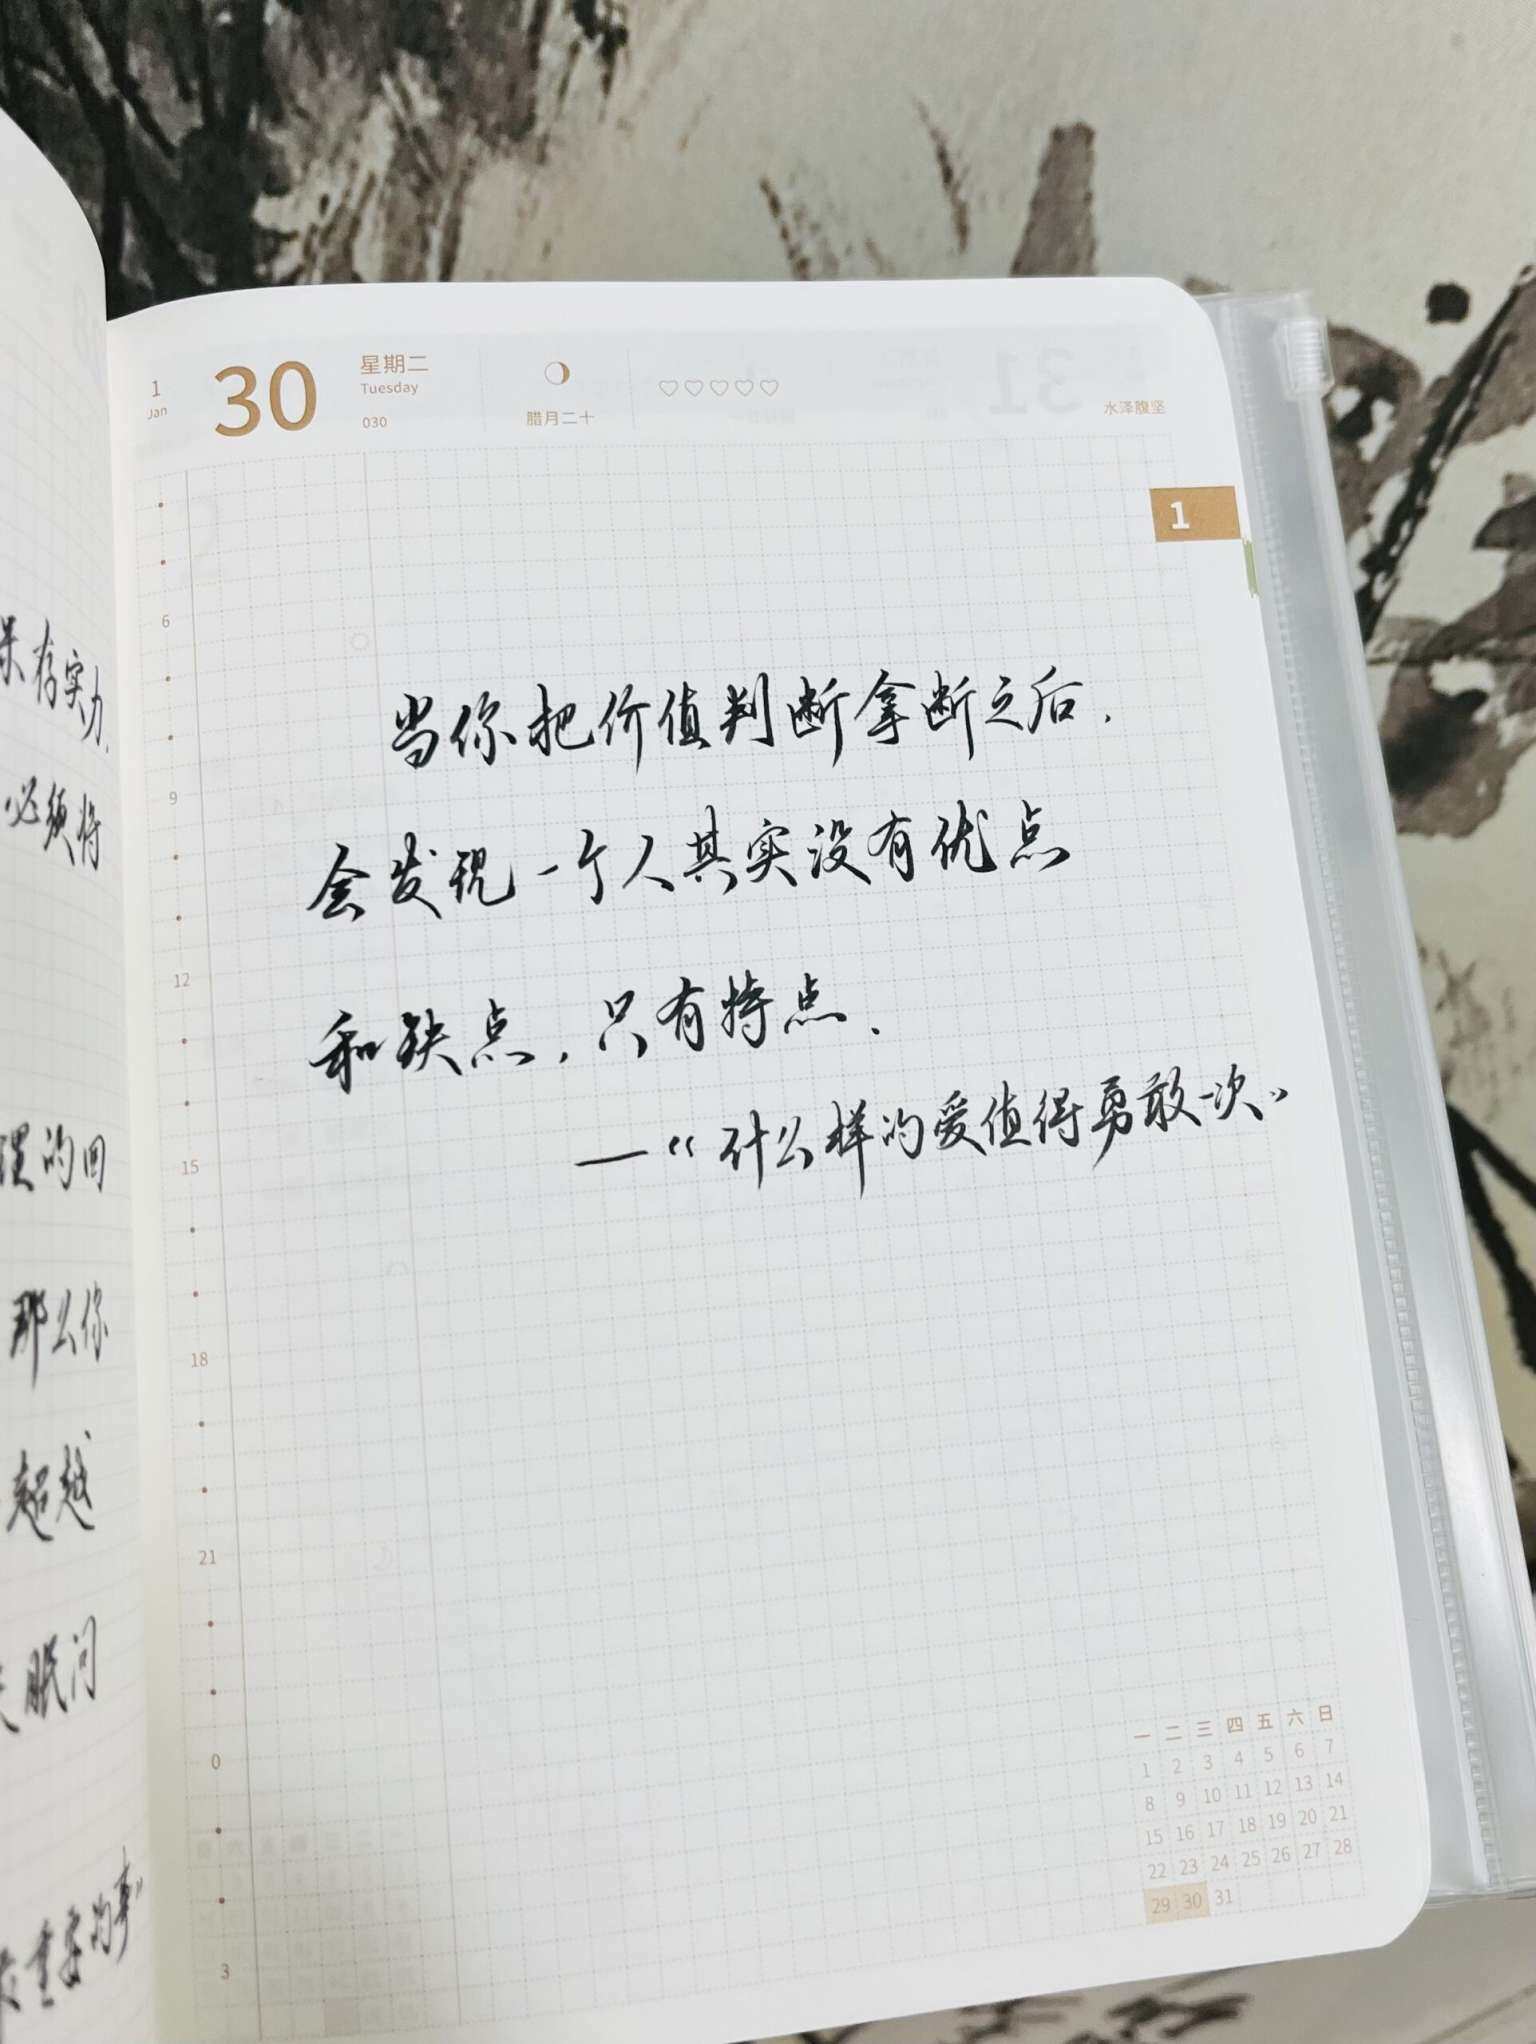 1
Jan
30
星期二
Tuesday
030
腊月二十
水泽腹坚
1
6
9
12
15
18
21
0
3
当你把价值判断拿断之后.
会发现一个人其实没有优点
和缺点,只有特点.
—《什么样的爱值得勇敢一次》
存实力.
必须将
的回
那么你
超越
眠问
重要的事"
一 二 三 四 五 六 日
1 2 3 4 5 6 7
8 9 10 11 12 13 14
15 16 17 18 19 20 21
22 23 24 25 26 27 28
29 30 31